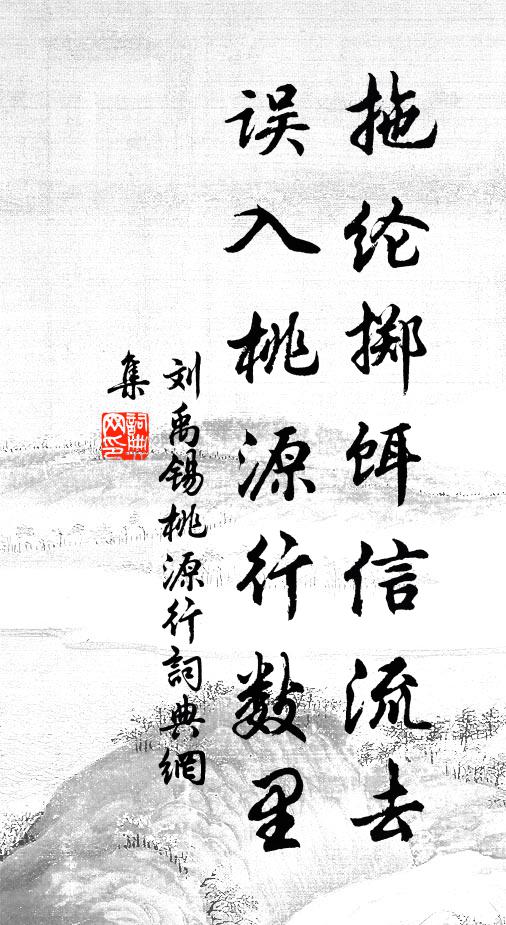 拖纶掷饵信流去
误入桃源行数里
刘禹锡桃源行詞典網
集
詞典
网印